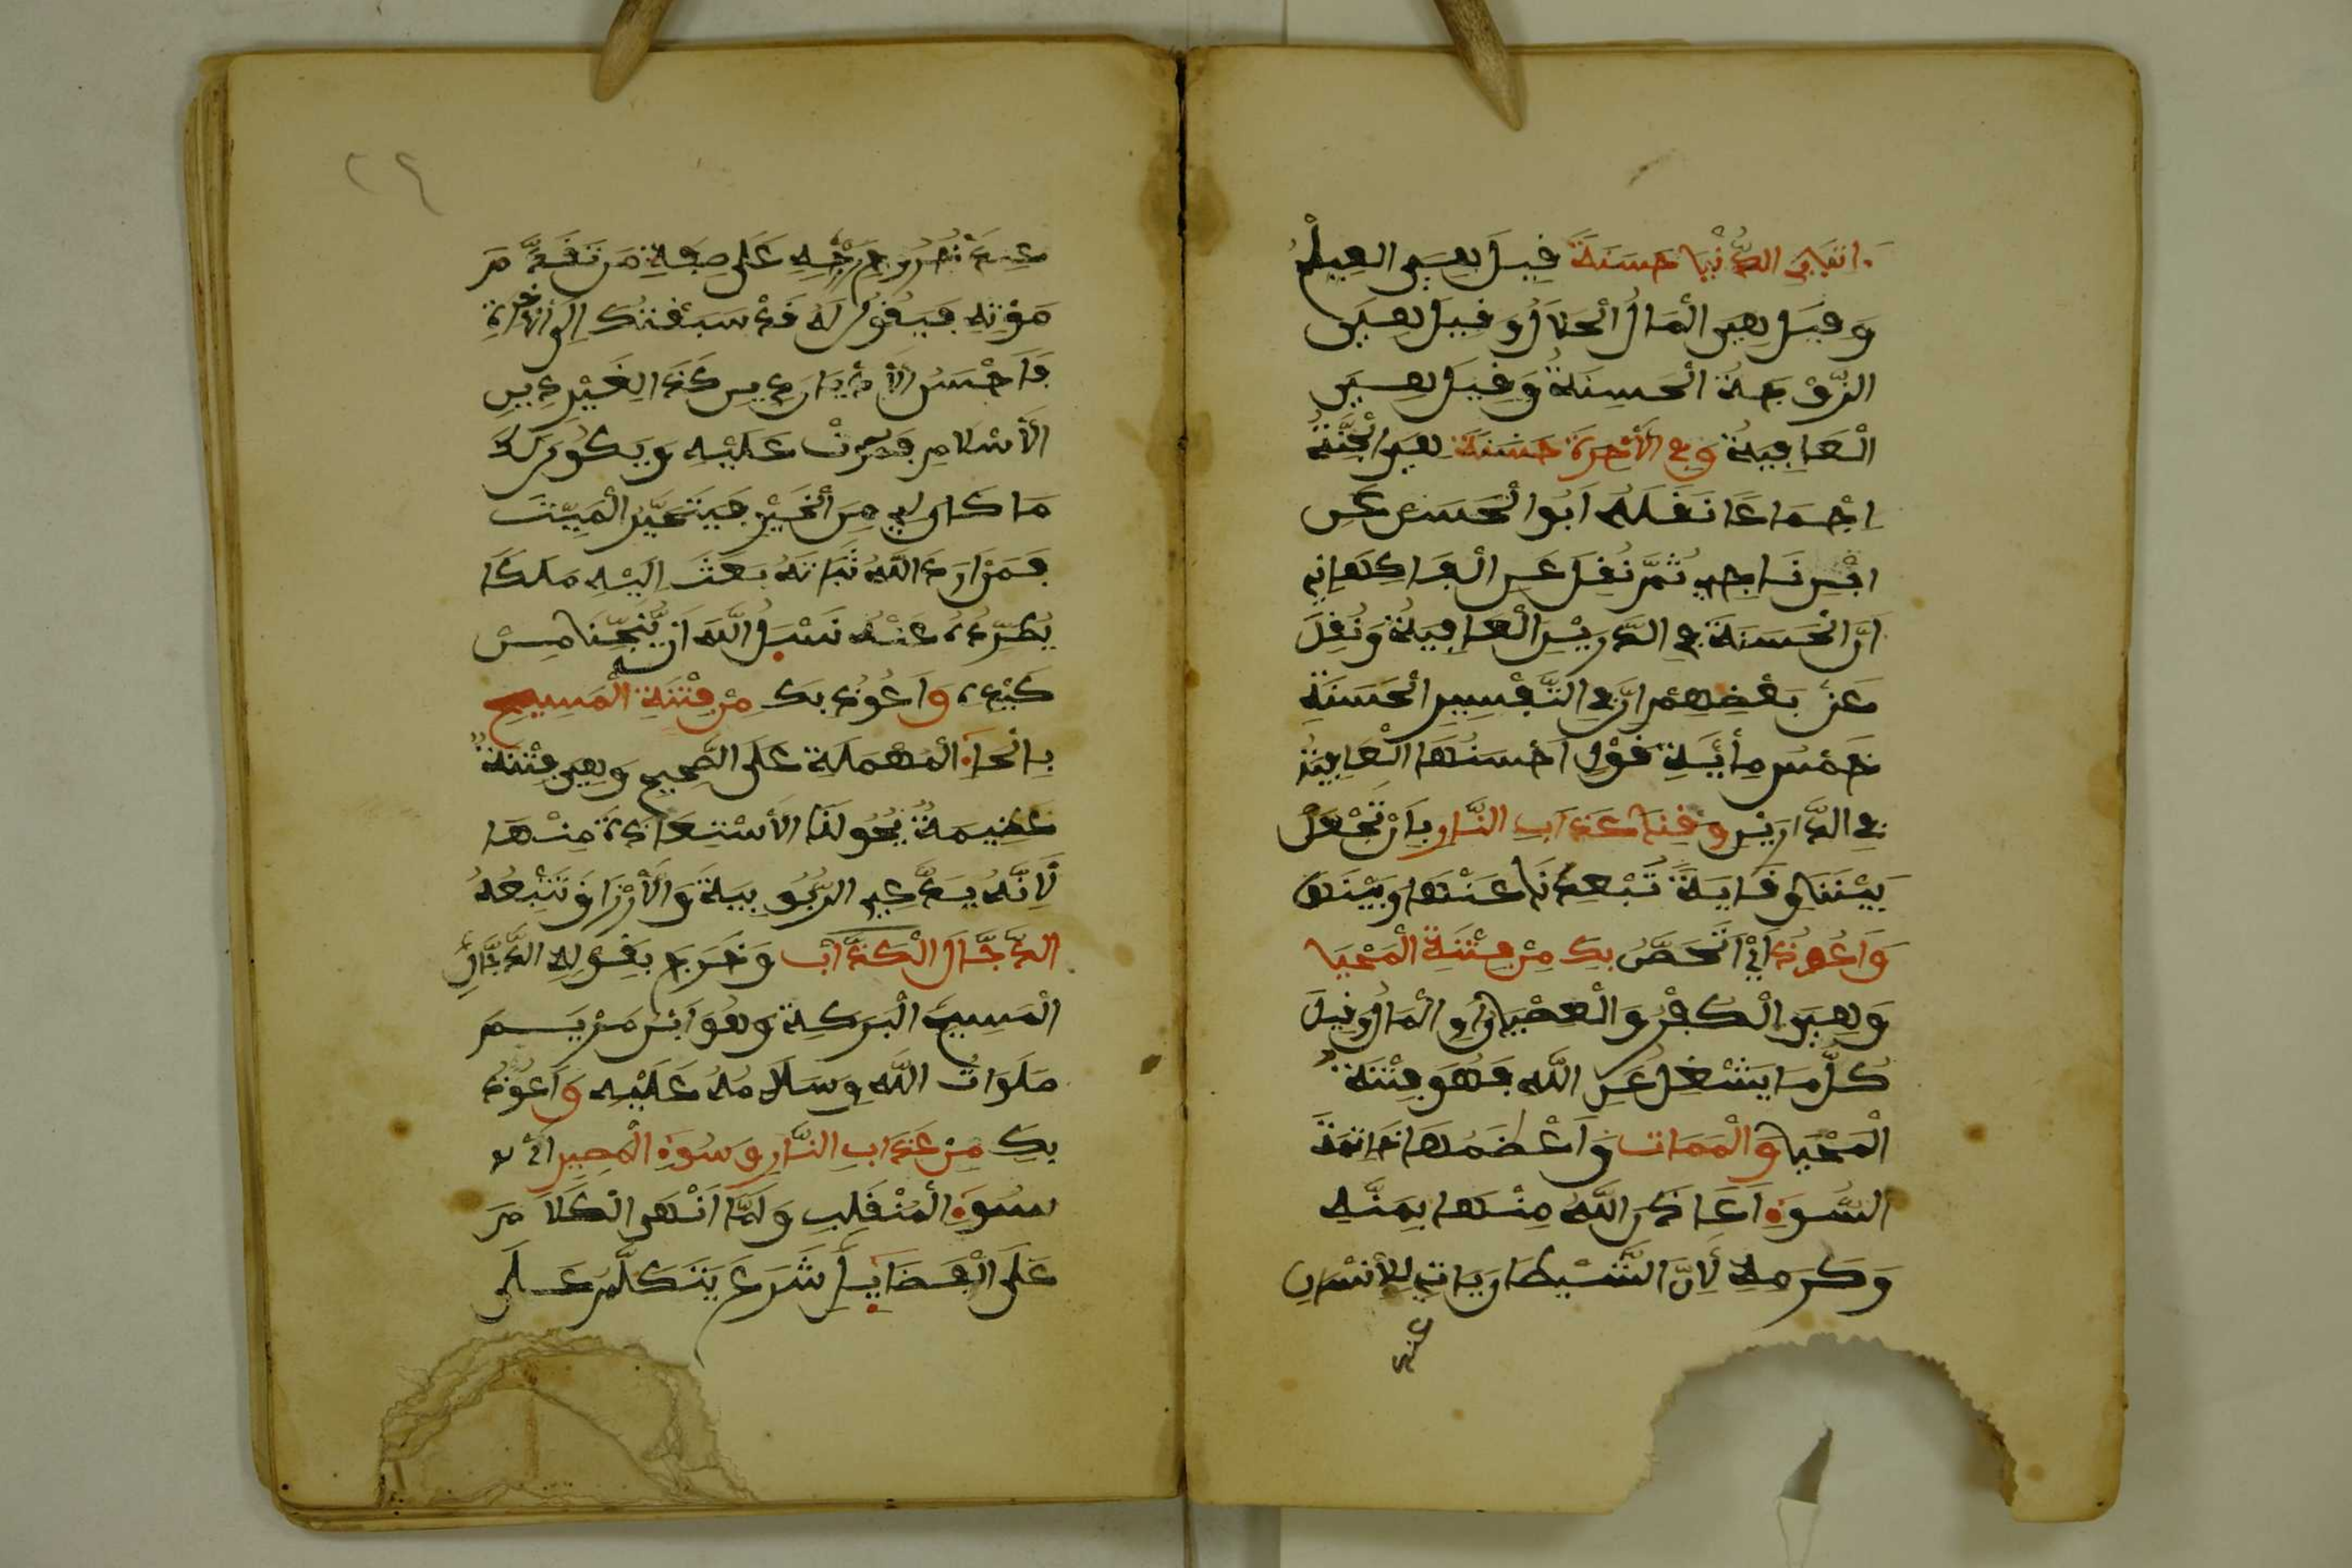 ءاتنا في الدُّنْيا حسنة قيل هي العلم
وقيل هي المال الحلال وقيل هي
الزوجة الحسنة وقيل هي
العافية وفي الأخرة حسنة هي الجنة
إجماعا نقله ابوا الحسن عن
ابن ناجي ثم نقل عن الفاكهاني
ان الحسنة في الدارين العافية ونقل
عن بعضهم ان في التفسير الحسنة
خمس مأية قول احسنها العافية
في الدارين وقنا عذاب النار بان تجعل
بيننا وقاية تبعدنا عنها وبينها
وأعوذ اي اتحصن بك من فتنة المحيا
وهي الكفر والعصيان او المال وقيل
كل ما يشغل عن الله فهو فتنة
المحيا والممات واعضمها خاتمة
السوء اعاذنا الله منها بمنه
وكرمه لأن الشيطان ياتي للأنسان
عند
٢٩
عند خروج روحه على صفة من تقدم
موته فيقول له قد سبقتك الى الأخرة
فاحسن الأديان دين كذا لغير دين
الأسلام فمت عليه ويكون لك
ما كان لي من الخير فيتحير الميت
فمن اراد الله ثباته بعث اليه ملكا
يطرده عنه نسئل الله ان ينجينا من
كيده وأعوذ بك من فتنة المسيح
بالحاء المهملة على الصحيح وهي فتنة
عضيمة يجو لنا الأستعاذة منها
لأنه يدعي الربوبية والأرزاق تتبعه
الدجال الكذاب وخرج بقوله الدجال
المسيح البركة وهو ابن مريم
صلوات الله وسلامه عليه وأعوذ
بك من عذاب النار وسوء المصير اي
سوء المنقلب ولما انهى الكلام
على الفضايل شرع يتكلم على